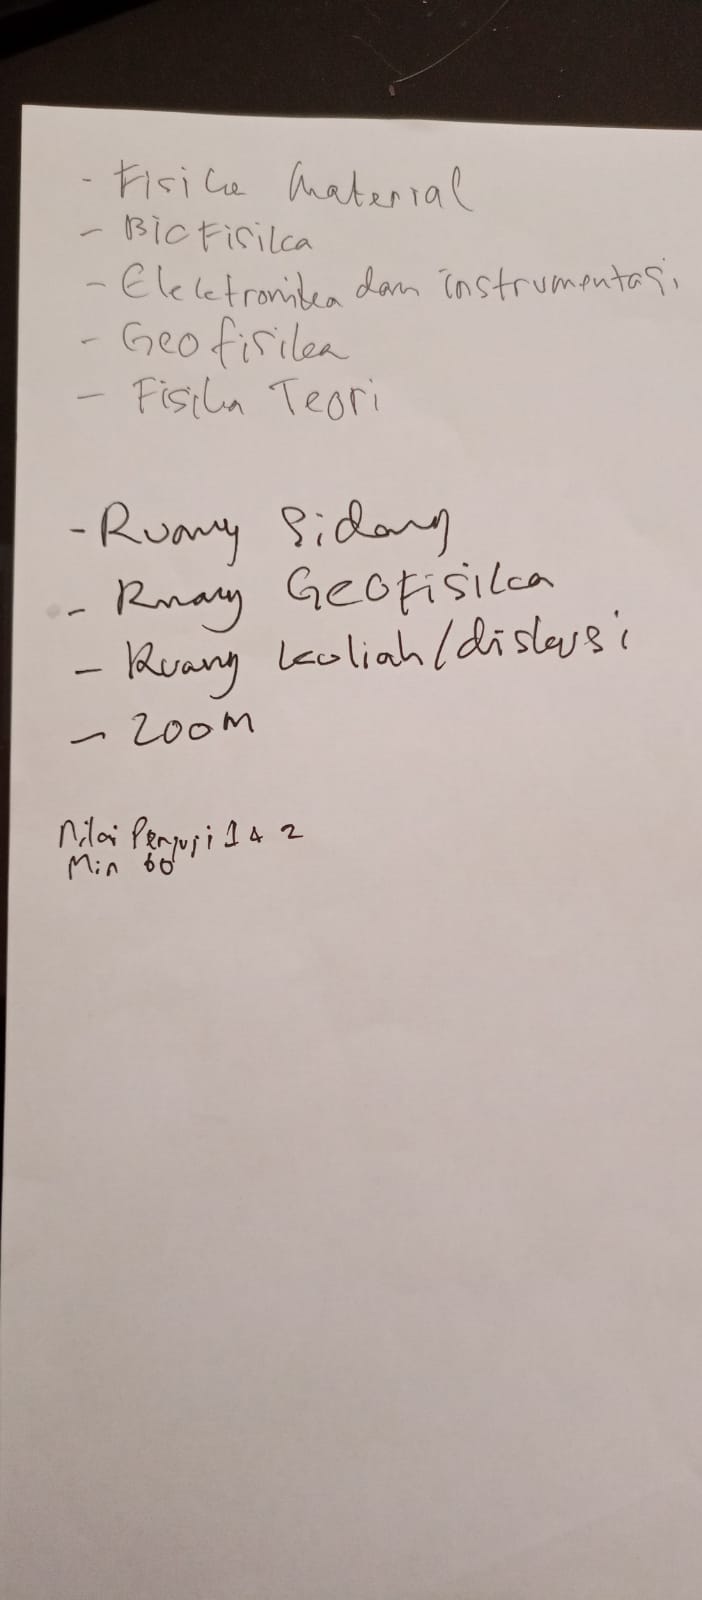 - Fisika Material
- Biofisika
- Elektronika dan instrumentasi
- Geofisika
- Fisika Teori
- Ruang Sidang
- Ruang Geofisika
- Ruang kuliah/diskusi
- Zoom
Nilai Penguji 1 & 2
Min 60